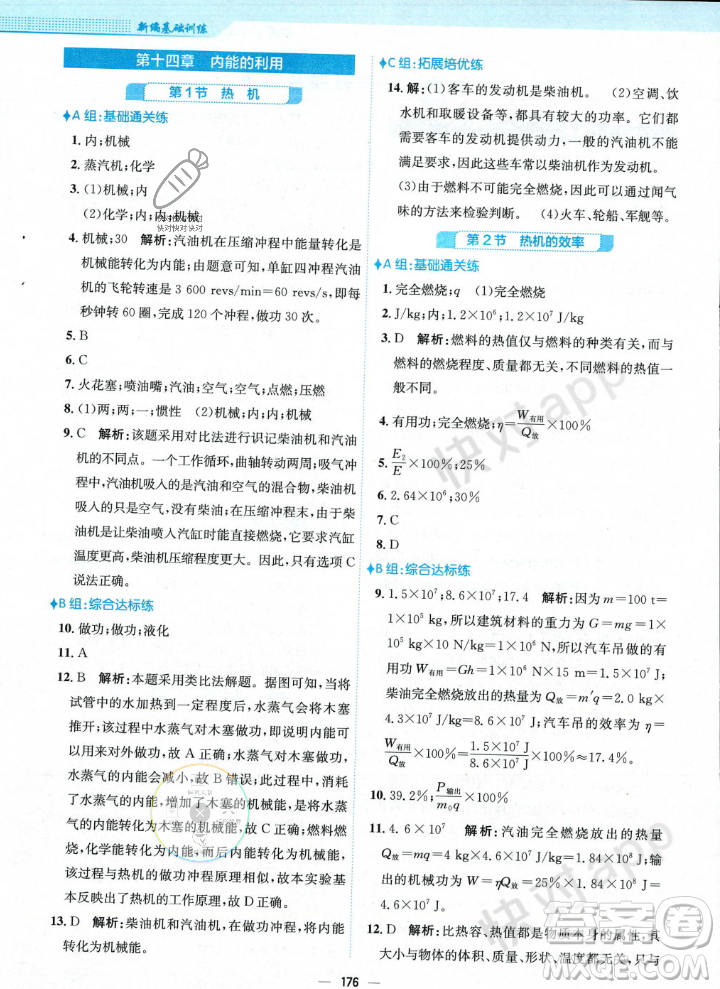 新编基础训练
第十四章 内能的利用
第1节 热 机
A组:基础通关练
1. 内;机械
2. 蒸汽机;化学
3. (1)机械;内
(2)化学;内;内;机械
4. 机械;30 解析:汽油机在压缩冲程中能量转化是
机械能转化为内能;由题意可知,单缸四冲程汽油
机的飞轮转速是 3 600 revs/min=60 r/s,即每
秒钟转 60 圈,完成 120 个冲程,做功 30 次。
5. B
6. C
7. 火花塞;喷油嘴;汽油;空气;空气;点燃;压燃
8. (1)两;两;一;惯性 (2)机械;内;内;机械
9. C 解析:该题采用对比法进行识记柴油机和汽油
机的不同点。一个工作循环,曲轴转动两周;吸气冲
程中,汽油机吸入的是汽油和空气的混合物,柴油机
吸入的只有空气,没有柴油;在压缩冲程末,由于柴
油机是让柴油喷入汽缸时能直接燃烧,它要求空气
温度更高,柴油机压缩程度更大。因此,只有选项 C
说法正确。
B组:综合达标练
10. 做功;做功;液化
11. A
12. B 解析:本题采用类比法解题。据图可知,当将
试管中的水加热到一定程度后,水蒸气会将木塞
推开;该过程中水蒸气对木塞做功,即说明内能可
以对外做功,故 A 正确;水蒸气对木塞做功,水蒸
气的内能会减小,故 B 错误;此过程中,消耗了水
蒸气的内能,增加了木塞的机械能,故是水蒸气的
内能转化为木塞的机械能,故 C 正确;由于燃料燃
烧,化学能转化为内能,而后内能转化为机械能,
该过程与热机的工作原理完全相同,故本实验基
本反映出了热机的工作原理,故 D 正确。
13. D 解析:柴油机和汽油机,在做功冲程都将内能
转化为机械能。
C组:拓展培优练
14. 解:(1)客车的发动机是柴油机。 (2)空调、饮
水机和取暖设备等,都具有较大的功率。它们
需要客车的发动机提供动力,一般的汽油机功
率较小,所以这类客车常以柴油机作为发动机。
(3)由于燃料不可能完全燃烧,所以可以通过闻气
味的方法来检验判断。 (4)火车、轮船、军舰等。
第2节 热机的效率
A组:基础通关练
1. 完全燃烧;q (1)完全燃烧
2. J/kg;内;1.2×10⁶;1.2×10⁷ J/kg
3. D 解析:燃料的热值仅与燃料的种类有关,而与
燃料的燃烧程度、质量都无关,不同燃料的热值一
般不同。
4. 有用功;完全燃烧;η=W有用/Q放×100%
5. E₂/E×100%;②
6. 2.64×10⁶;30%
7. C
8. D
B组:综合达标练
9. 1.5×10⁷;8.6×10⁷;17.4 解析:因为 m=100 t=
1×10⁵ kg,所以建筑材料的重力为 G=mg=1×
10⁵ kg×10 N/kg=1×10⁶ N,所以汽车吊做的有
用功 W有用=Gh=1×10⁶ N×15 m=1.5×10⁷ J;
柴油完全燃烧放出的热量 Q放=m′q=2.0 kg
×4.3×10⁷ J/kg=8.6×10⁷ J;汽车吊的效率 η=
W有用/Q放×100%=1.5×10⁷ J/8.6×10⁷ J×100%≈17.4%。
10. 39.2%;P输出/m₀q×100%
11. 4.6×10⁷ 解析:汽油完全燃烧放出的热量
Q放=mq=4 kg×4.6×10⁷ J/kg=1.84×10⁸ J;
做功 W=ηQ放=25%×1.84×10⁸ J=4.6×10⁷ J。
12. D 解析:比热容、热值是物质本身的属性,其
大小与物体的体积、质量、形状、温度都无关,只与
176
快对 app
快对 app
快对快对快对
答案圈